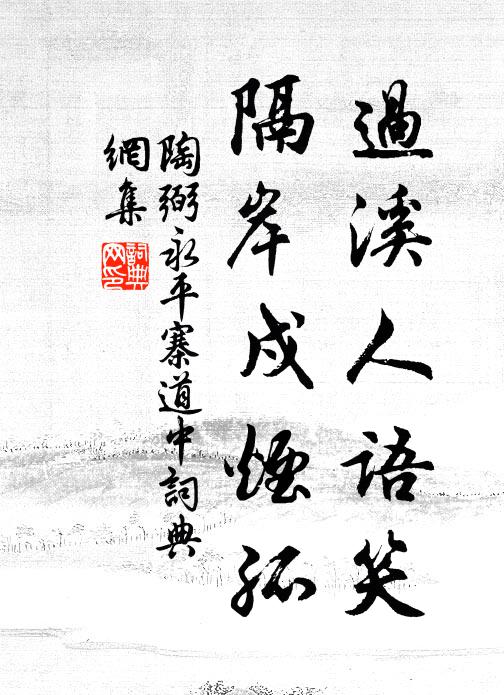 過溪人語笑
隔岸戍煙孤
陶弼永平寨道中詞典
網集
詞典
網印